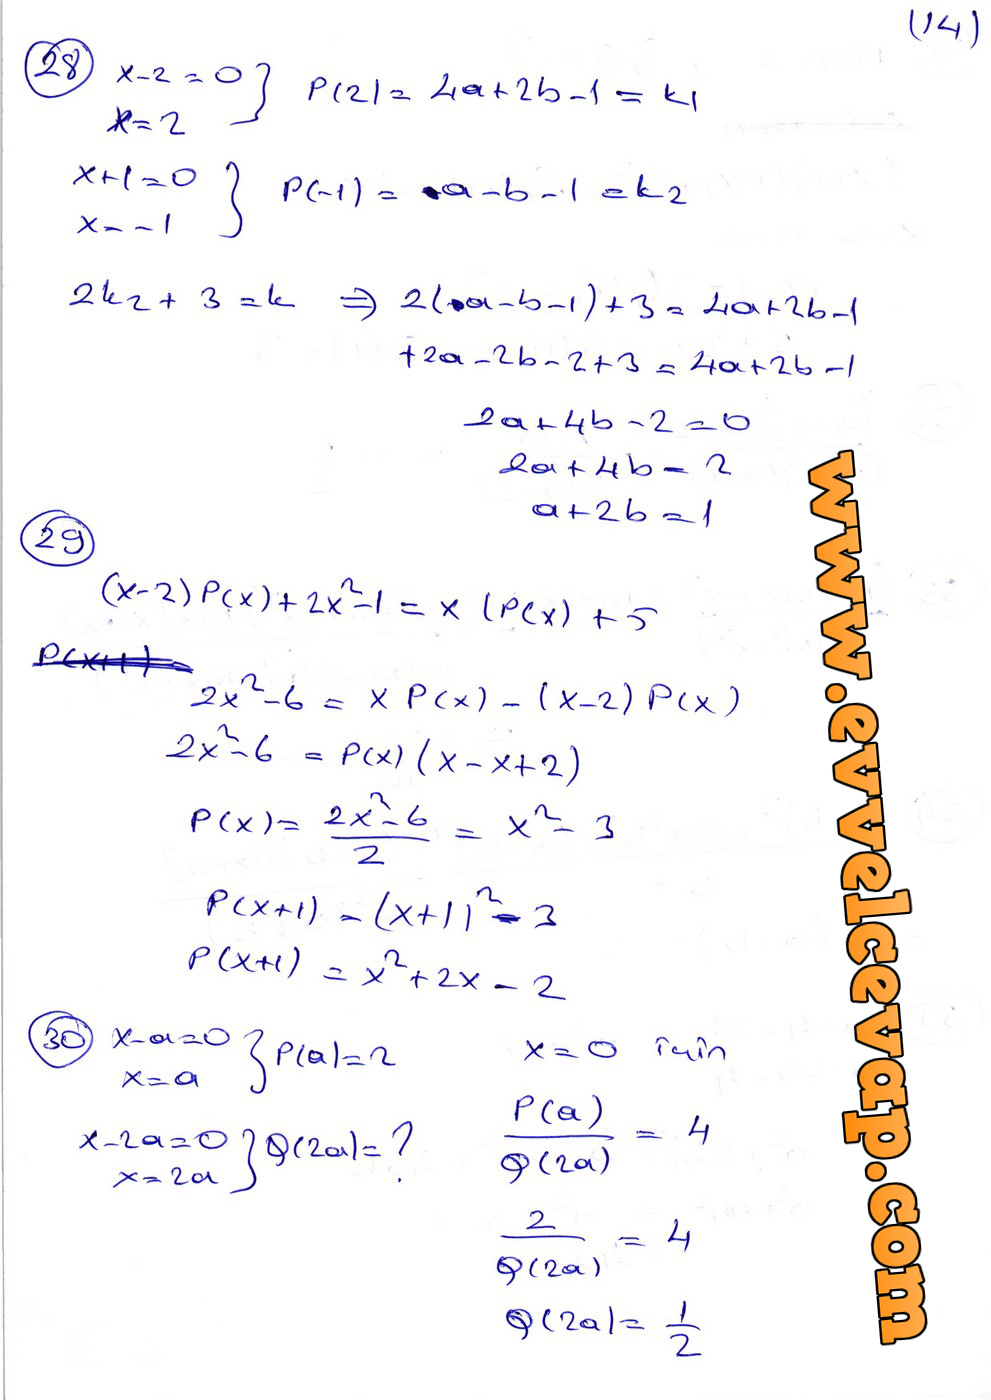 (14)
28 x-2=0 } P(2)= 4a+2b-1=k1
x=2
x+1=0 } P(-1)= a-b-1=k2
x=-1
2k2+3=k ⇒ 2(a-b-1)+3=4a+2b-1
+2a-2b-2+3=4a+2b-1
2a+4b-2=0
2a+4b=2
a+2b=1
29
(x-2)P(x)+2x²-1=x(P(x)+5
P(x+1)=
2x²-6=xP(x)-(x-2)P(x)
2x²-6=P(x)(x-x+2)
P(x)= 2x²-6/2 = x²-3
P(x+1)=(x+1)²-3
P(x+1)=x²+2x-2
30 x-a=0 } P(a)=2
x=a
x-2a=0 } Q(2a)=?
x=2a
x=0 için
P(a)/Q(2a) = 4
2/Q(2a) = 4
Q(2a)= 1/2
www.evvelcevap.com